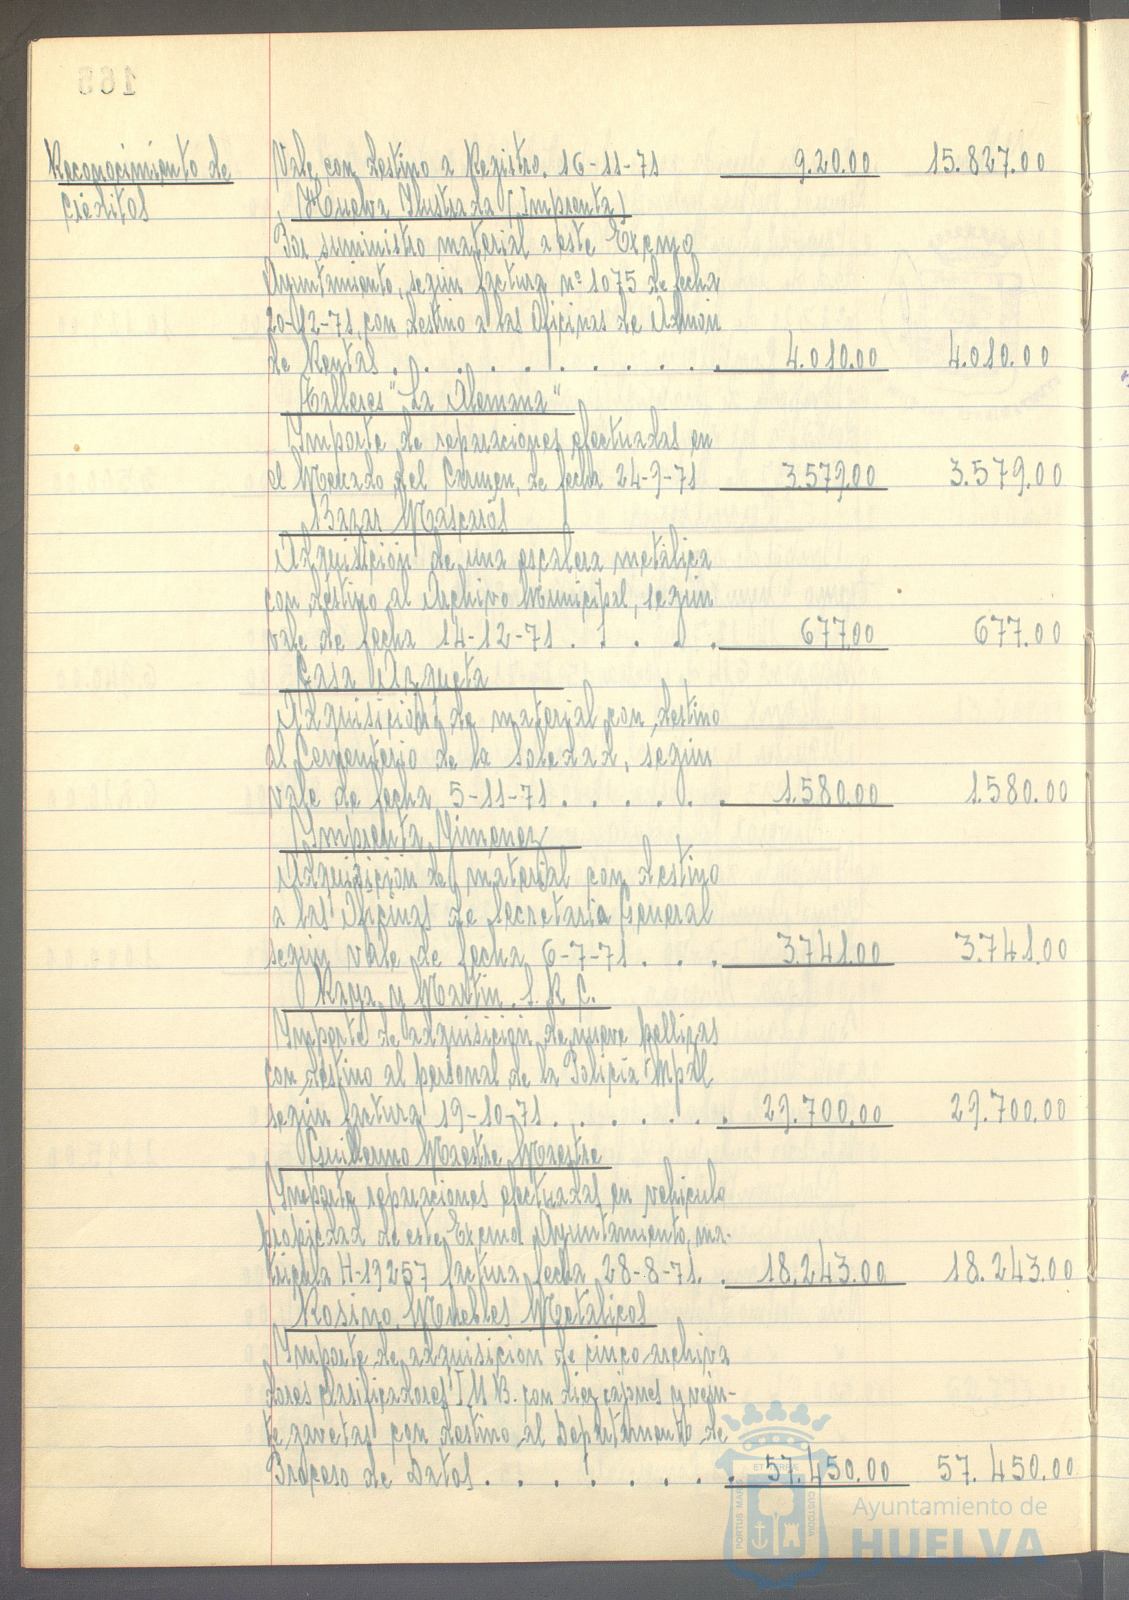 165
Reconocimiento de
créditos
Vale con destino a Registro. 16-11-71 9.20.00 15.827.00
Huelva Ilustrada (Imprenta)
Por suministro material a este Excmo
Ayuntamiento, según factura nº 1075 de fecha
20-12-71, con destino a las Oficinas de Admon
de Rentas . . . . . . . . . . 4.010.00 4.010.00
Talleres "La Alemana"
Importe de reparaciones efectuadas en
el Mercado del Carmen, de fecha 24-9-71 3.579.00 3.579.00
Bazar Mascarós
Adquisición de una escalera metálica
con destino al Archivo Municipal, según
vale de fecha 14-12-71 . . . . . 677.00 677.00
Casa Azqueta
Adquisición de material con destino
al Cementerio de la Soledad, según
vale de fecha 5-11-71 . . . . . . 1.580.00 1.580.00
Imprenta Jimenez
Adquisición de material con destino
a las Oficinas de Secretaría General
según vale de fecha 6-7-71 . . . 3.741.00 3.741.00
Raya y Martin. S. R. C.
Importe de adquisición de nueve pellizas
con destino al personal de la Policía Mpal
según factura 19-10-71 . . . . . . . 29.700.00 29.700.00
Guillermo Maestre Maestre
Importe reparaciones efectuadas en vehículo
propiedad de este Excmo Ayuntamiento, ma-
trícula H-13257 factura fecha 28-8-71. . 18.243.00 18.243.00
Rosino, Muebles Metálicos
Importe de adquisición de cinco archiva
dores clasificadores I.M.B. con diez cajones y vein-
te gavetas con destino al Departamento de
Proceso de Datos . . . . . . . . 57.450.00 57.450.00
PORTUS MARIS ET TERRE CUSTODIA
Ayuntamiento de
HUELVA